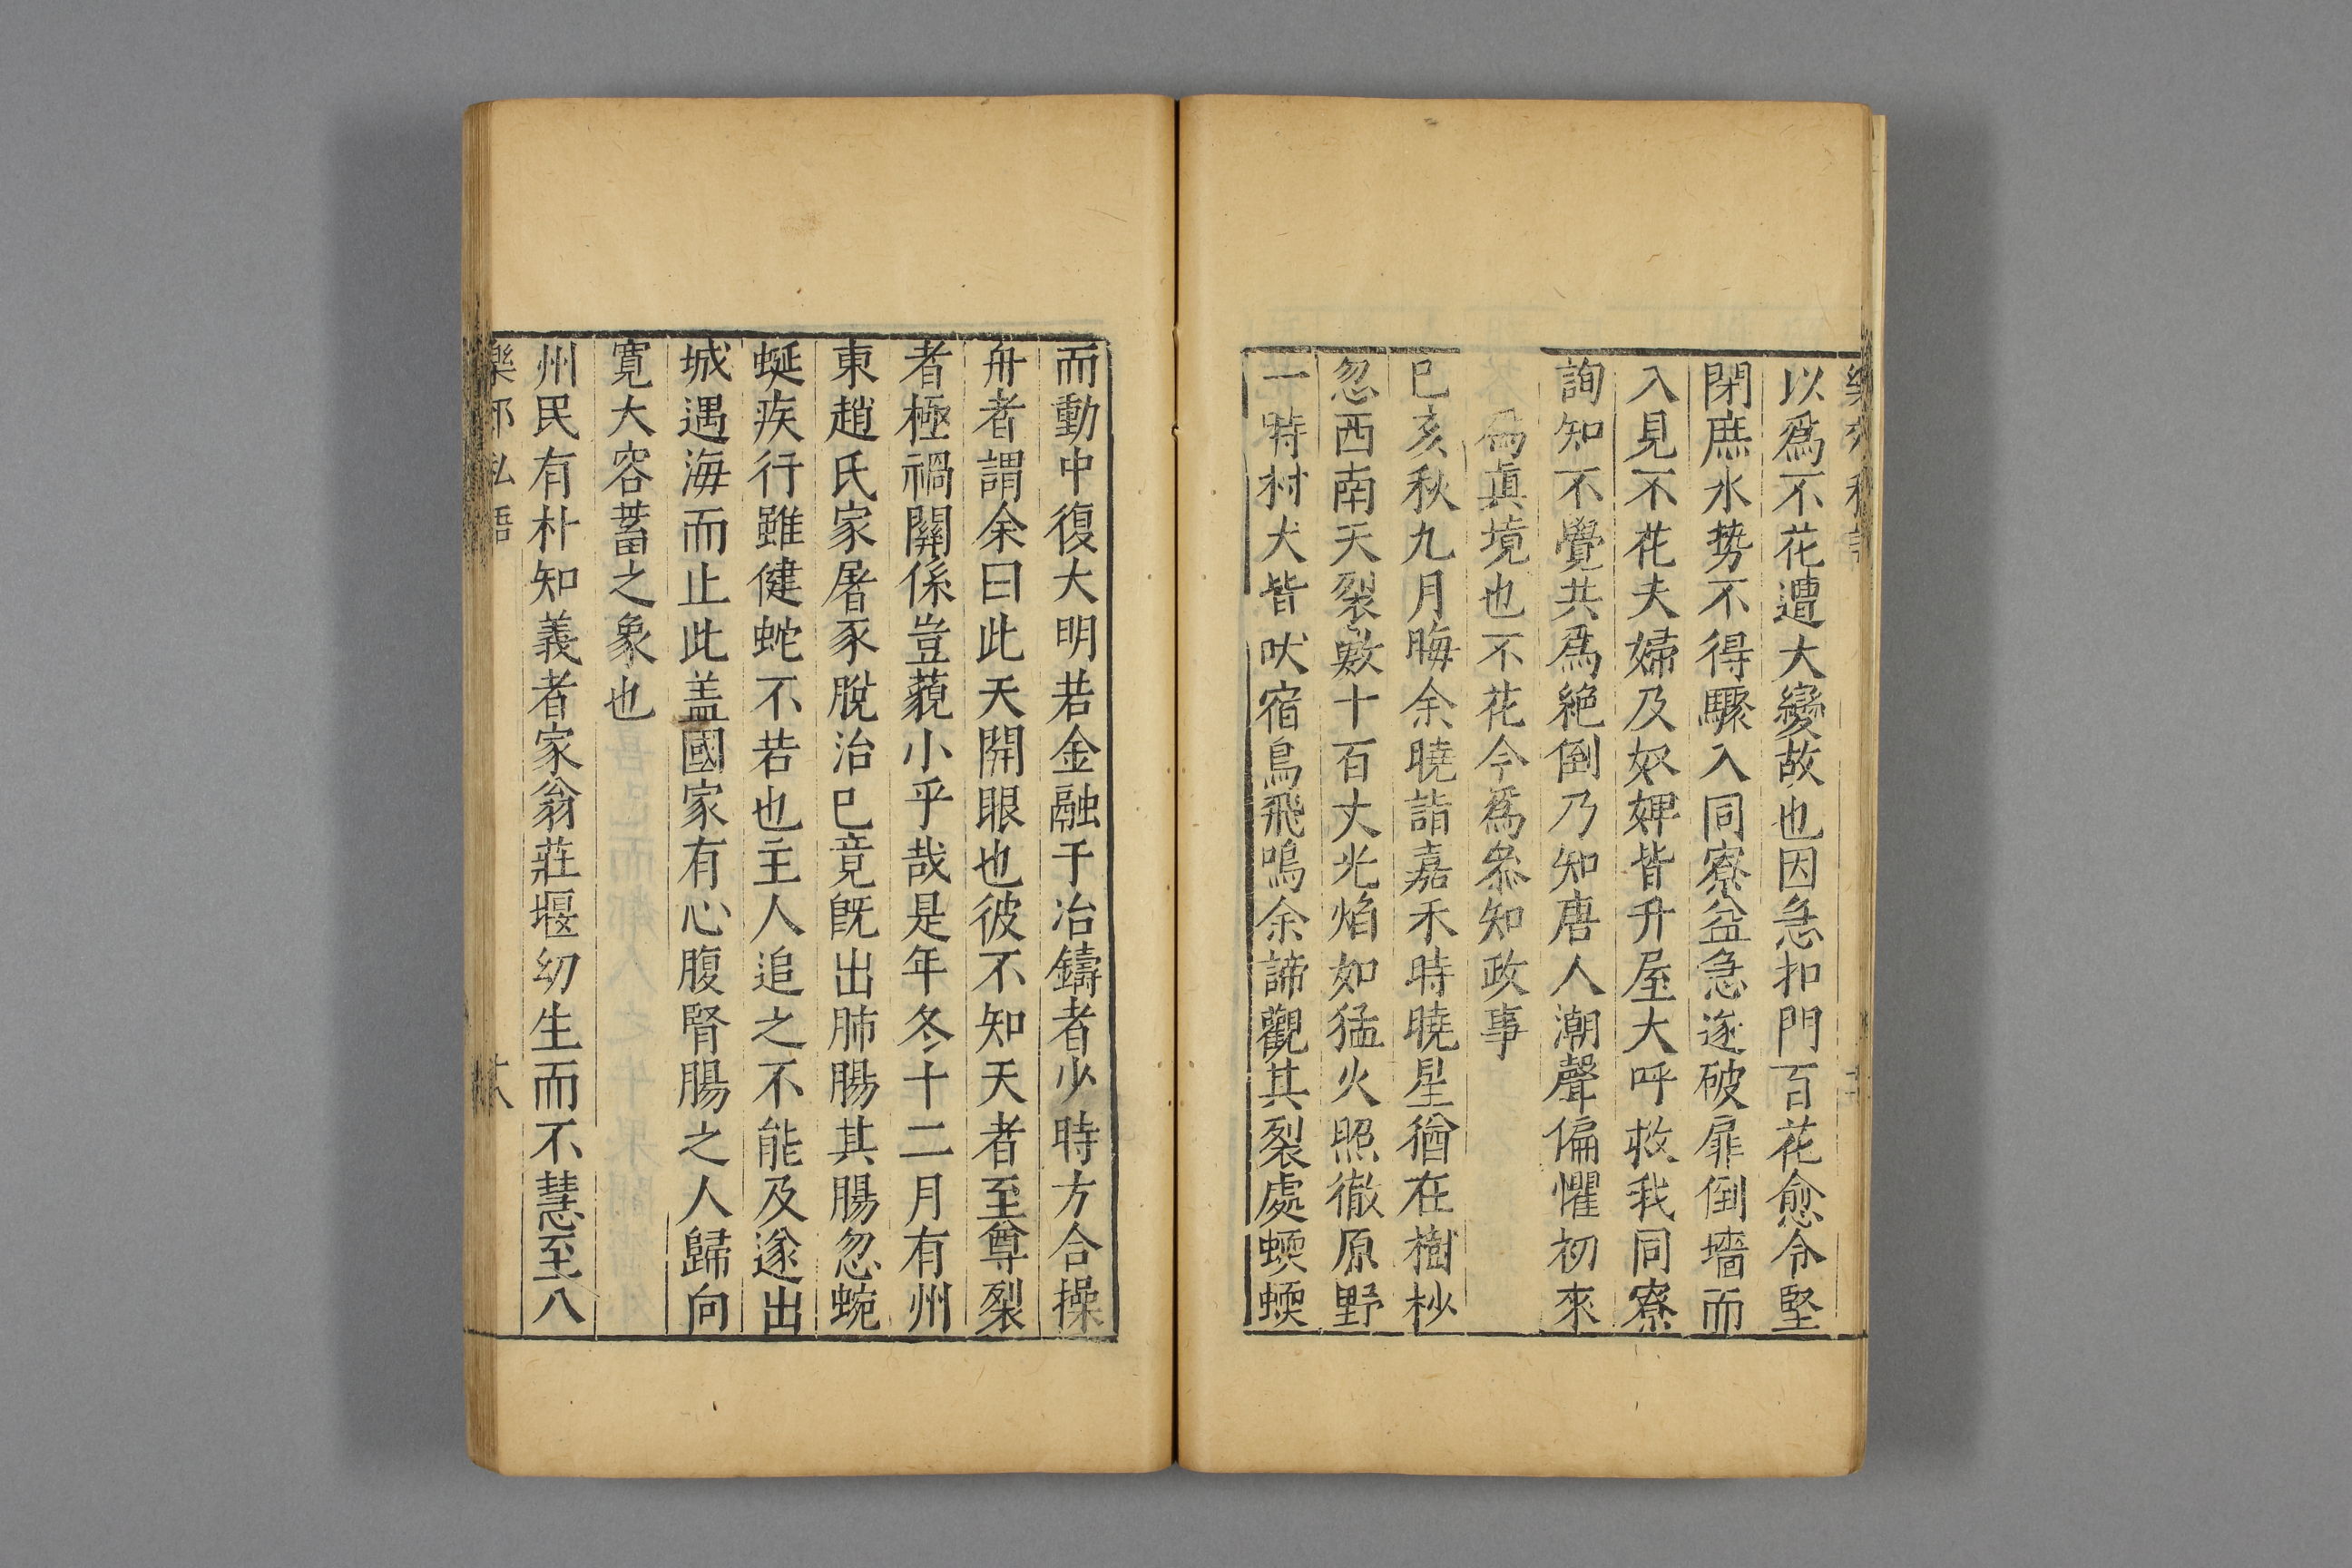 以爲不花遭大變故也因急扣門百花愈令堅
閉庶水势不得驟入同寮益急遂破扉倒墻而
入見不花夫婦及奴婢皆升屋大呼救我同寮
詢知不覺共爲絶倒乃知唐人潮聲偏懼初來
爲眞境也不花今爲叅知政事
已亥秋九月晦余曉詣嘉禾時曉星猶在樹杪
忽西南天裂數十百丈光焰如猛火照徹原野
一時村犬皆吠宿鳥飛鳴余諦觀其裂處蝡蝡
而動中復大明若金融于冶鑄者少時方合操
舟者謂余曰此天開眼也彼不知天者至尊裂
者極禍關係豈藐小乎哉是年冬十二月有州
東趙氏家屠豕脫治已竟旣出肺腸其腸忽蜿
蜒疾行雖健蛇不若也主人追之不能及遂出
城遇海而止此盖國家有心腹腎腸之人歸向
寛大容蓄之象也
州民有朴知義者家翁莊堰幼生而不慧至八
樂郊私語